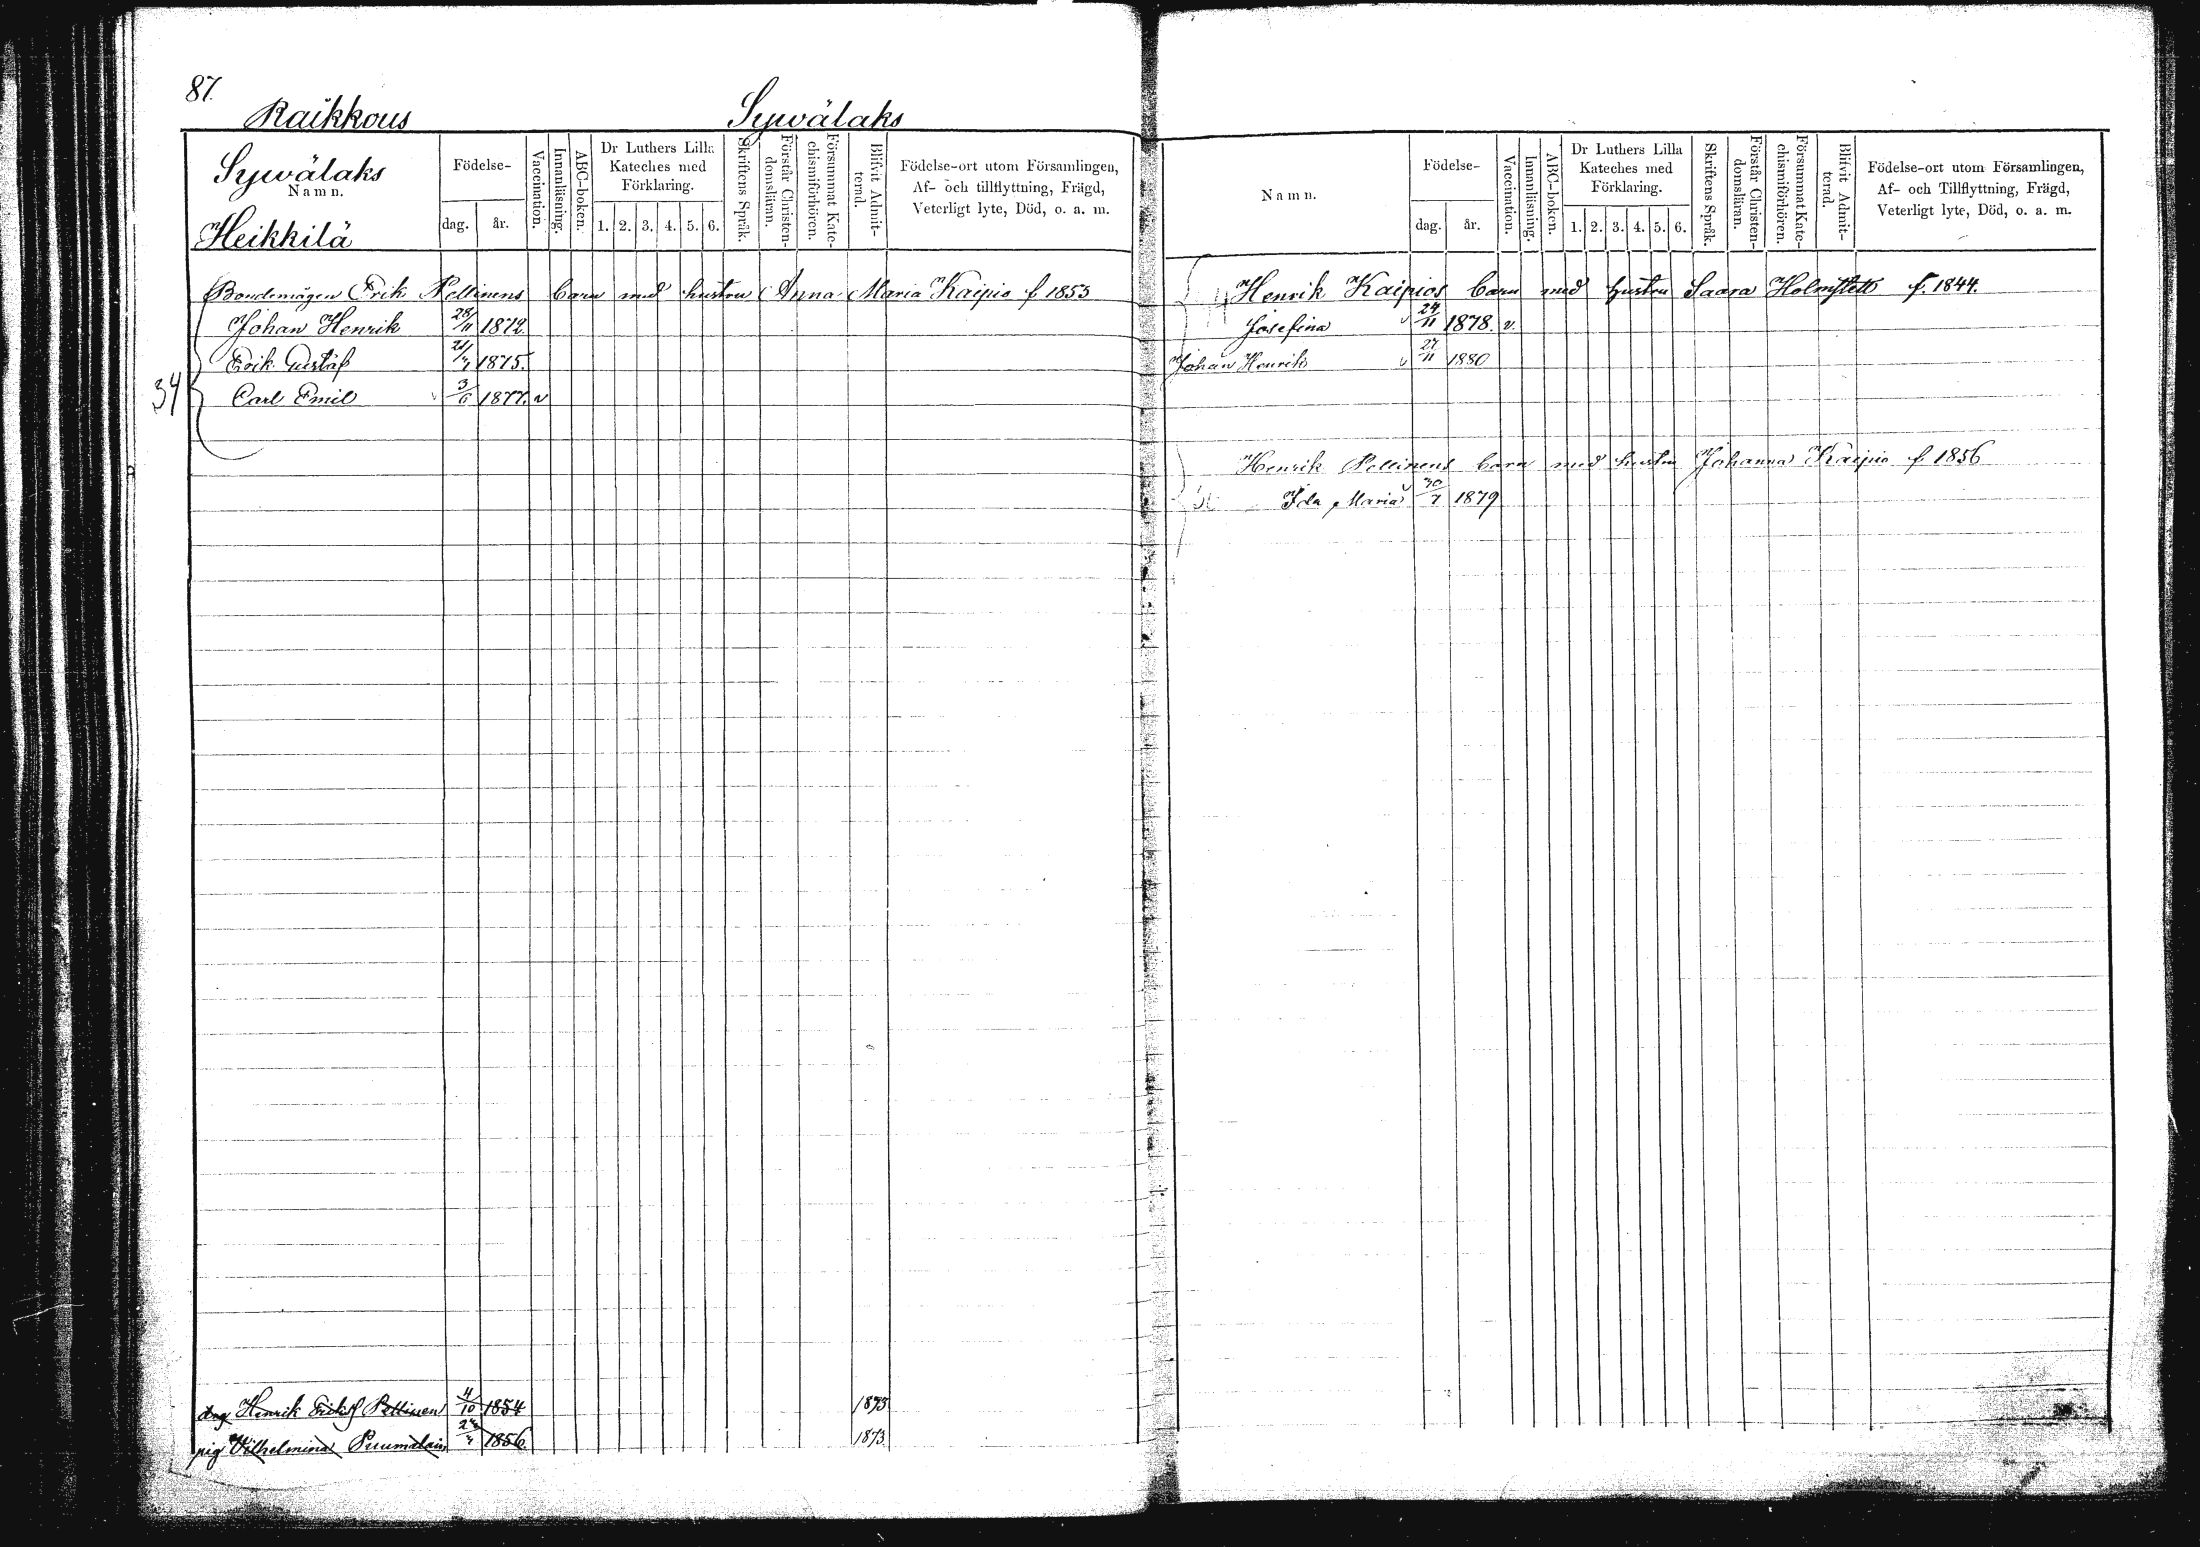 87.
Raikkous Sywälaks
Sywälaks
Namn.
Heikkilä
Födelse-
dag. år.
Vaccination.
Innanläsning.
ABC-boken.
Dr Luthers Lilla
Kateches med
Förklaring.
1. 2. 3. 4. 5. 6.
Skriftens Språk.
Förstår Christen-
domsläran.
Försummat Kate-
chismiförhören.
Blifvit Admit-
terad.
Födelse-ort utom Församlingen,
Af- och tillflyttning, Frägd,
Veterligt lyte, Död, o. a. m.
Bondemågen Erik Pellinens barn med hustru Anna Maria Kaipio f 1853
Johan Henrik 28/11 1872
Erik Gustaf 1875.
34 Carl Emil 3/6 1877. v
drg Henrik Eriksf Pellinen 4/10 1854 1873
pig Wilhelmina 1856. 1873
Namn.
Födelse-
dag. år.
Vaccination.
Innanläsning.
ABC-boken.
Dr Luthers Lilla
Kateches med
Förklaring.
1. 2. 3. 4. 5. 6.
Skriftens Språk.
Förstår Christen-
domsläran.
Försummat Kate-
chismiförhören.
Blifvit Admit-
terad.
Födelse-ort utom Församlingen,
Af- och Tillflyttning, Frägd,
Veterligt lyte, Död, o. a. m.
Henrik Kaipios barn med hustru Saara f. 1844.
Josefina 24/11 1878. v.
Johan Henrik 27/11 1880
Henrik Pellinens barn med hustru Johanna Kaipio f 1856
Ida Maria 30/7 1879